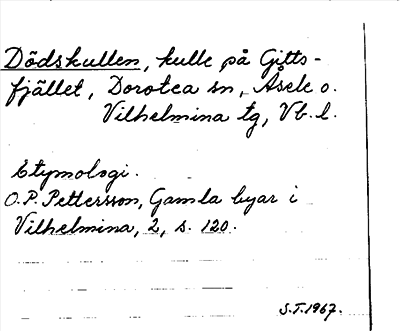 Dödskullen, kulle på Gitts-
fjället, Dorotea sn, Åsele o.
Vilhelmina tg, Vb. l.
Etymologi.
O.P. Pettersson, Gamla byar i
Vilhelmina, 2, s. 120.
S.T. 1967.